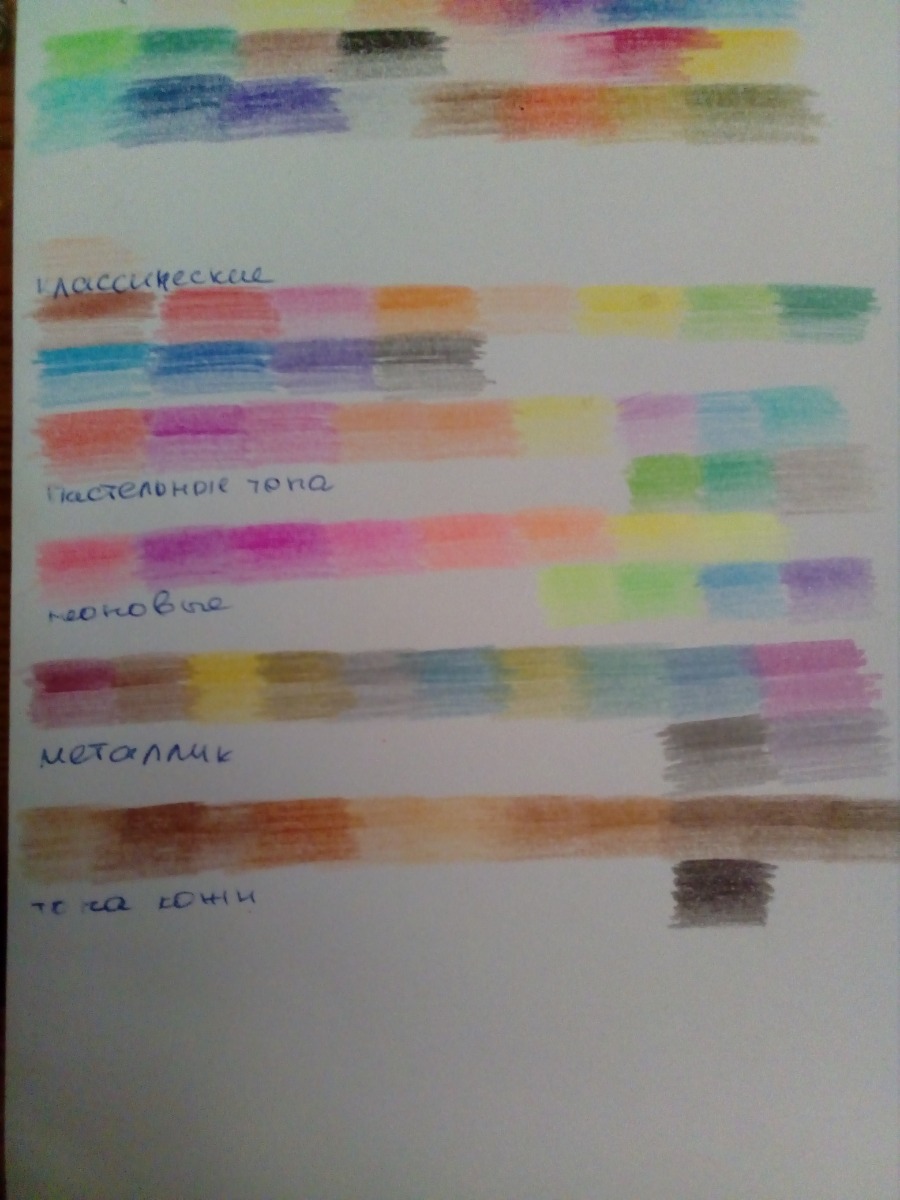 классические
пастельные тона
неоновые
металлик
тона кожи